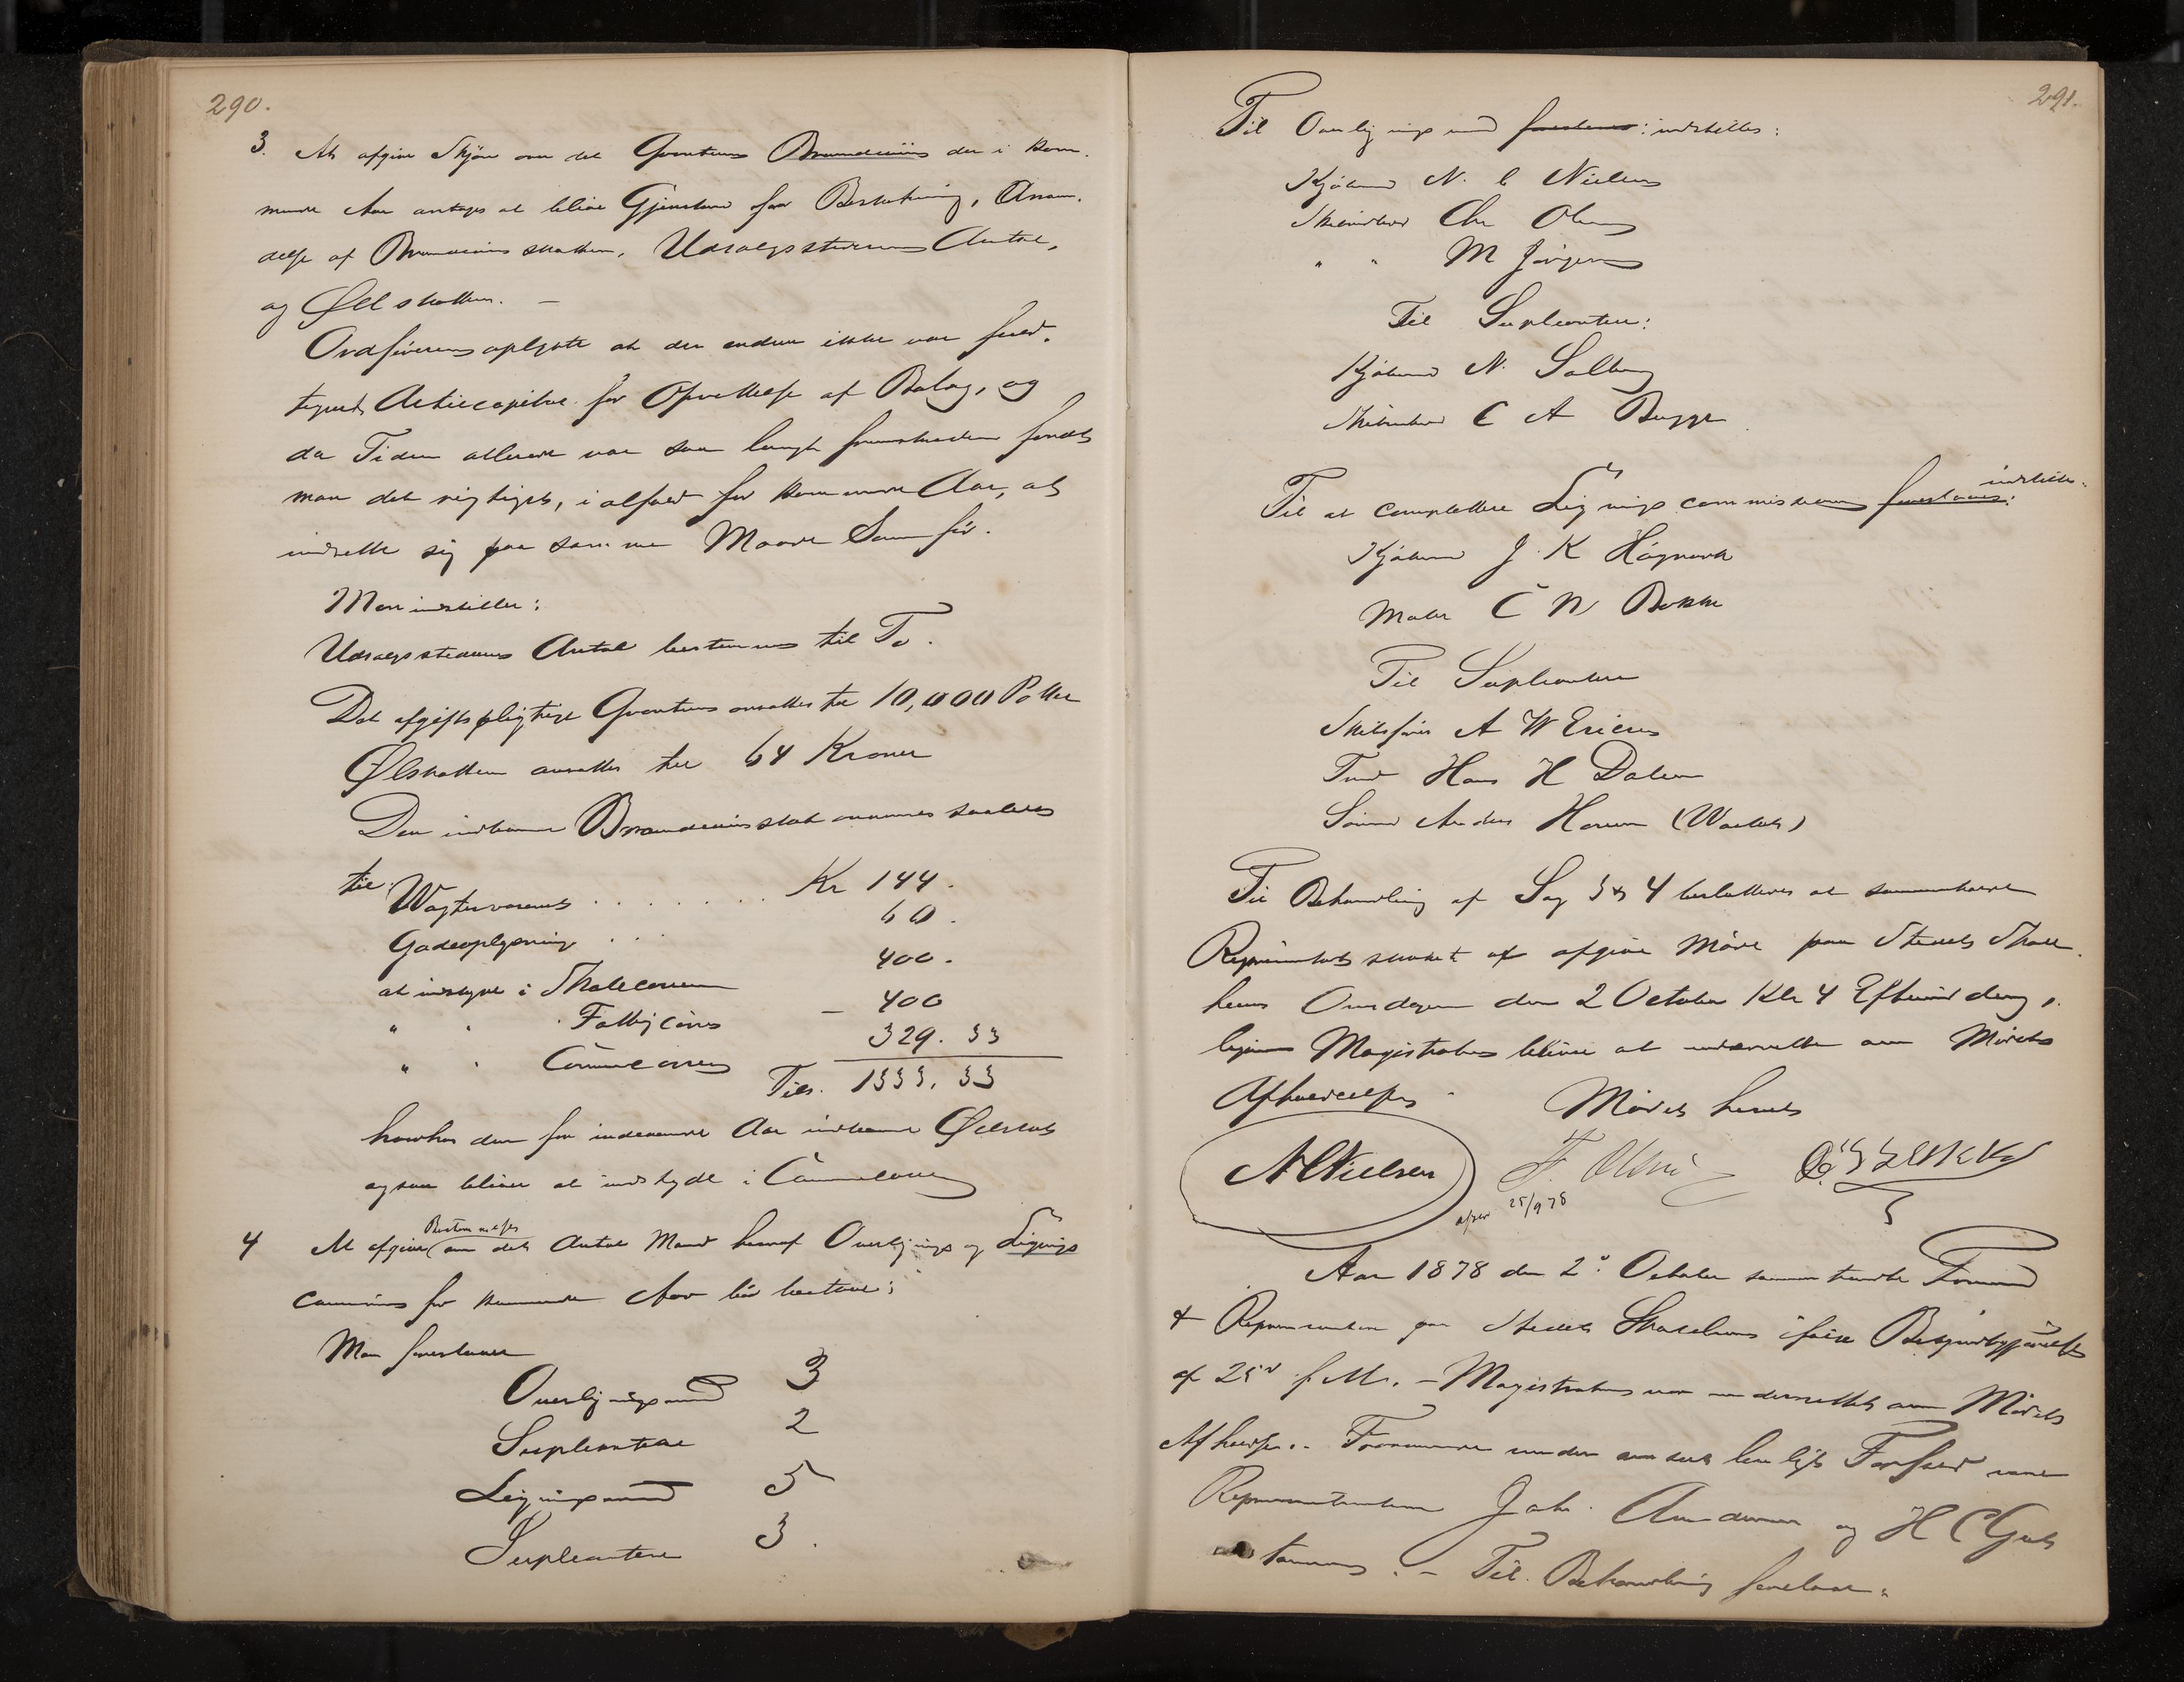 290.
3. At afgive Skjøn om det Qvantum Brændeviin der i kom-
mende Aar antages at blive Gjenstand for Beskatning, Anven-
delse af Brændeviinsskatten, Udsalgsstedernes Antal,
og Ølskatten. —
Ordføreren oplyste at der endnu ikke var fuld-
tegnet Actiecapital for Oprettelse af Bolag, og
da Tiden allerede var saa langt fremskreden fandt
man det rigtigst, i alfald for kommende Aar, at
indrette sig paa samme Maade som før.
Man indstiller:
Udsalgsstedernes Antal bestemmes til To.
Det afgiftspligtige Qvantum ansattes til 10,000 Potter
Ølskatten ansattes til 64 Kroner
Den indkomne Brændeviinsskat anvendes saaledes
til: Vægtervæsenet . . . . . . . Kr 144.
Gadeoplysning . . . 60.
at indskyde i Skolecassen 400.
" " Fattigcassen — 400
" " Communecassen 329. 33
Tils. 1333. 33
hvorhos den for indeværende Aar indkomne Ølskat
ogsaa bliver at indskyde i Communecassen
4 At afgive Bestemmelse om det Antal Mænd hvoraf Overlignings og Lignings
commission for kommende Aar bør bestaae;
Man foreslaaer
Overligningsmænd 3
Supleantere 2
Ligningsmænd 5
Supleantere 3.
291.
Til Overligningsmænd foreslaaes: indstilles:
Kjøbmand N. C Nielsen
Skibsreder Chr Olsen
" " M Jørgensen
Til Supleanter:
Kjøbmand N. Solberg
Skibsreder C A Bugge
Til at complettere Ligningscommissionen foreslaaes: indstilles:
Kjøbmand J. K Høgnevold
Maler C N Bakke
Til Supleantere
Skibsfører A W Ericsen
Hans H Dalen
Anders Hansen
Til Behandling af Sag 3 & 4 besluttedes at sammenkalde
Repræsentantskabet at afgive Møde paa Stedets Skole-
huus Onsdagen den 2 October Kl 4 Eftermiddag,
ligesom Magistraten bliver at underrette om Mødets
Afholdelse. Mødet hævet
N C Nielsen F. Olsen
25/9 78
Aar 1878 den 2. October sammentraadte Formænd
& Repræsentanter paa Stedets Skolehuus ifølge Bekjendtgjørelse
af 25 f. M. — Magistraten var underrettet om Mødets
Afholdelse. — Fraværende uden anmeldt lovligt Forfald vare
Repræsentanterne Joh. Andersen og H C Gul-
— Til Behandling forelaae: